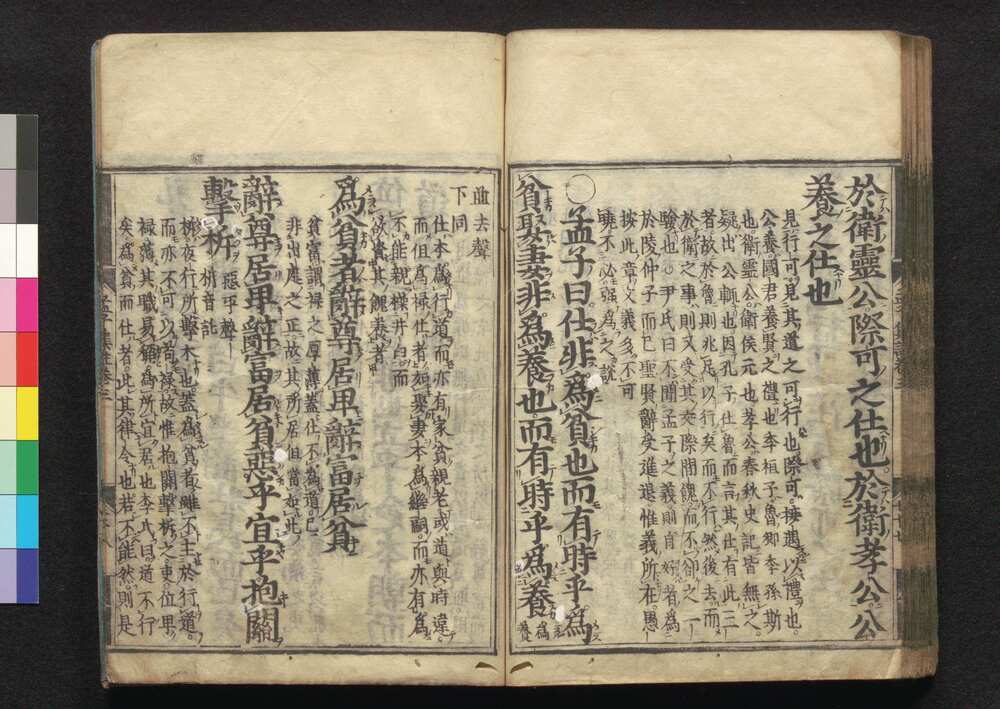 於衛靈公際可之仕也於衛孝公公
養之仕也
見行可見其道之可行也際可接遇以禮也
公養國君養賢之禮也季桓子魯卿季孫斯
也衛靈公衛侯元也孝公春秋史記皆無之
疑出公輒也因孔子仕魯而言其仕有此三
者故於魯則兆足以行矣而不行然後去而
於衛之事則又受其交際問餽而不卻之一
驗也○尹氏曰不聞孟子之義則自好者為
於陵仲子而已聖賢辭受進退惟義所在愚
按此章文義多不可
曉不必強為之說
○孟子曰仕非為貧也而有時乎為
貧娶妻非為養也而有時乎為養
為養
並去聲
下同
仕本為行道而亦有家貧親老或道與時違
而但為祿仕者如娶妻本為繼嗣而亦有為
不能親操井臼而
欲資其餽養者
為貧者辭尊居卑辭富居貧
貧富謂祿之厚薄蓋仕不為道已
非出處之正故其所居但當如此
辭尊居卑辭富居貧惡乎宜乎抱關
擊柝
惡平聲
柝音託
柝夜行所擊木也蓋為貧者雖不主於行道
而亦不可以苟祿故惟抱關擊柝之吏位卑
祿薄其職易稱為所宜居也李氏曰道不行
矣為貧而仕者此其律令也若不能然則是